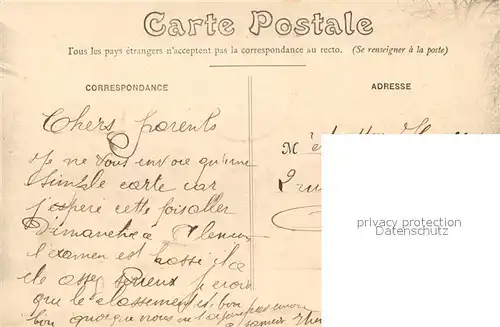 Carte Postale
Tous les pays étrangers n'acceptent pas la correspondance au recto. (Se renseigner à la poste)
CORRESPONDANCE
ADRESSE
Chers parents
Je ne vous envoie qu'une
simple carte car
j'espère cette fois aller
Dimanche à
l'examen est passé il a
été assez sérieux je crois
que le classement est bon
bon quoique nous ne l'ayons pas encore
M
2 rue
privacy protection
personal data